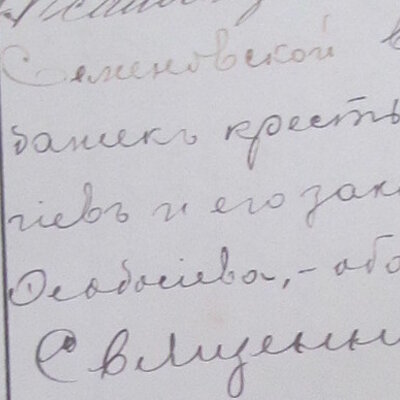 Семеновской в
банекъ кресть
гіевъ и его зак
Особосіева, - обо
Священни